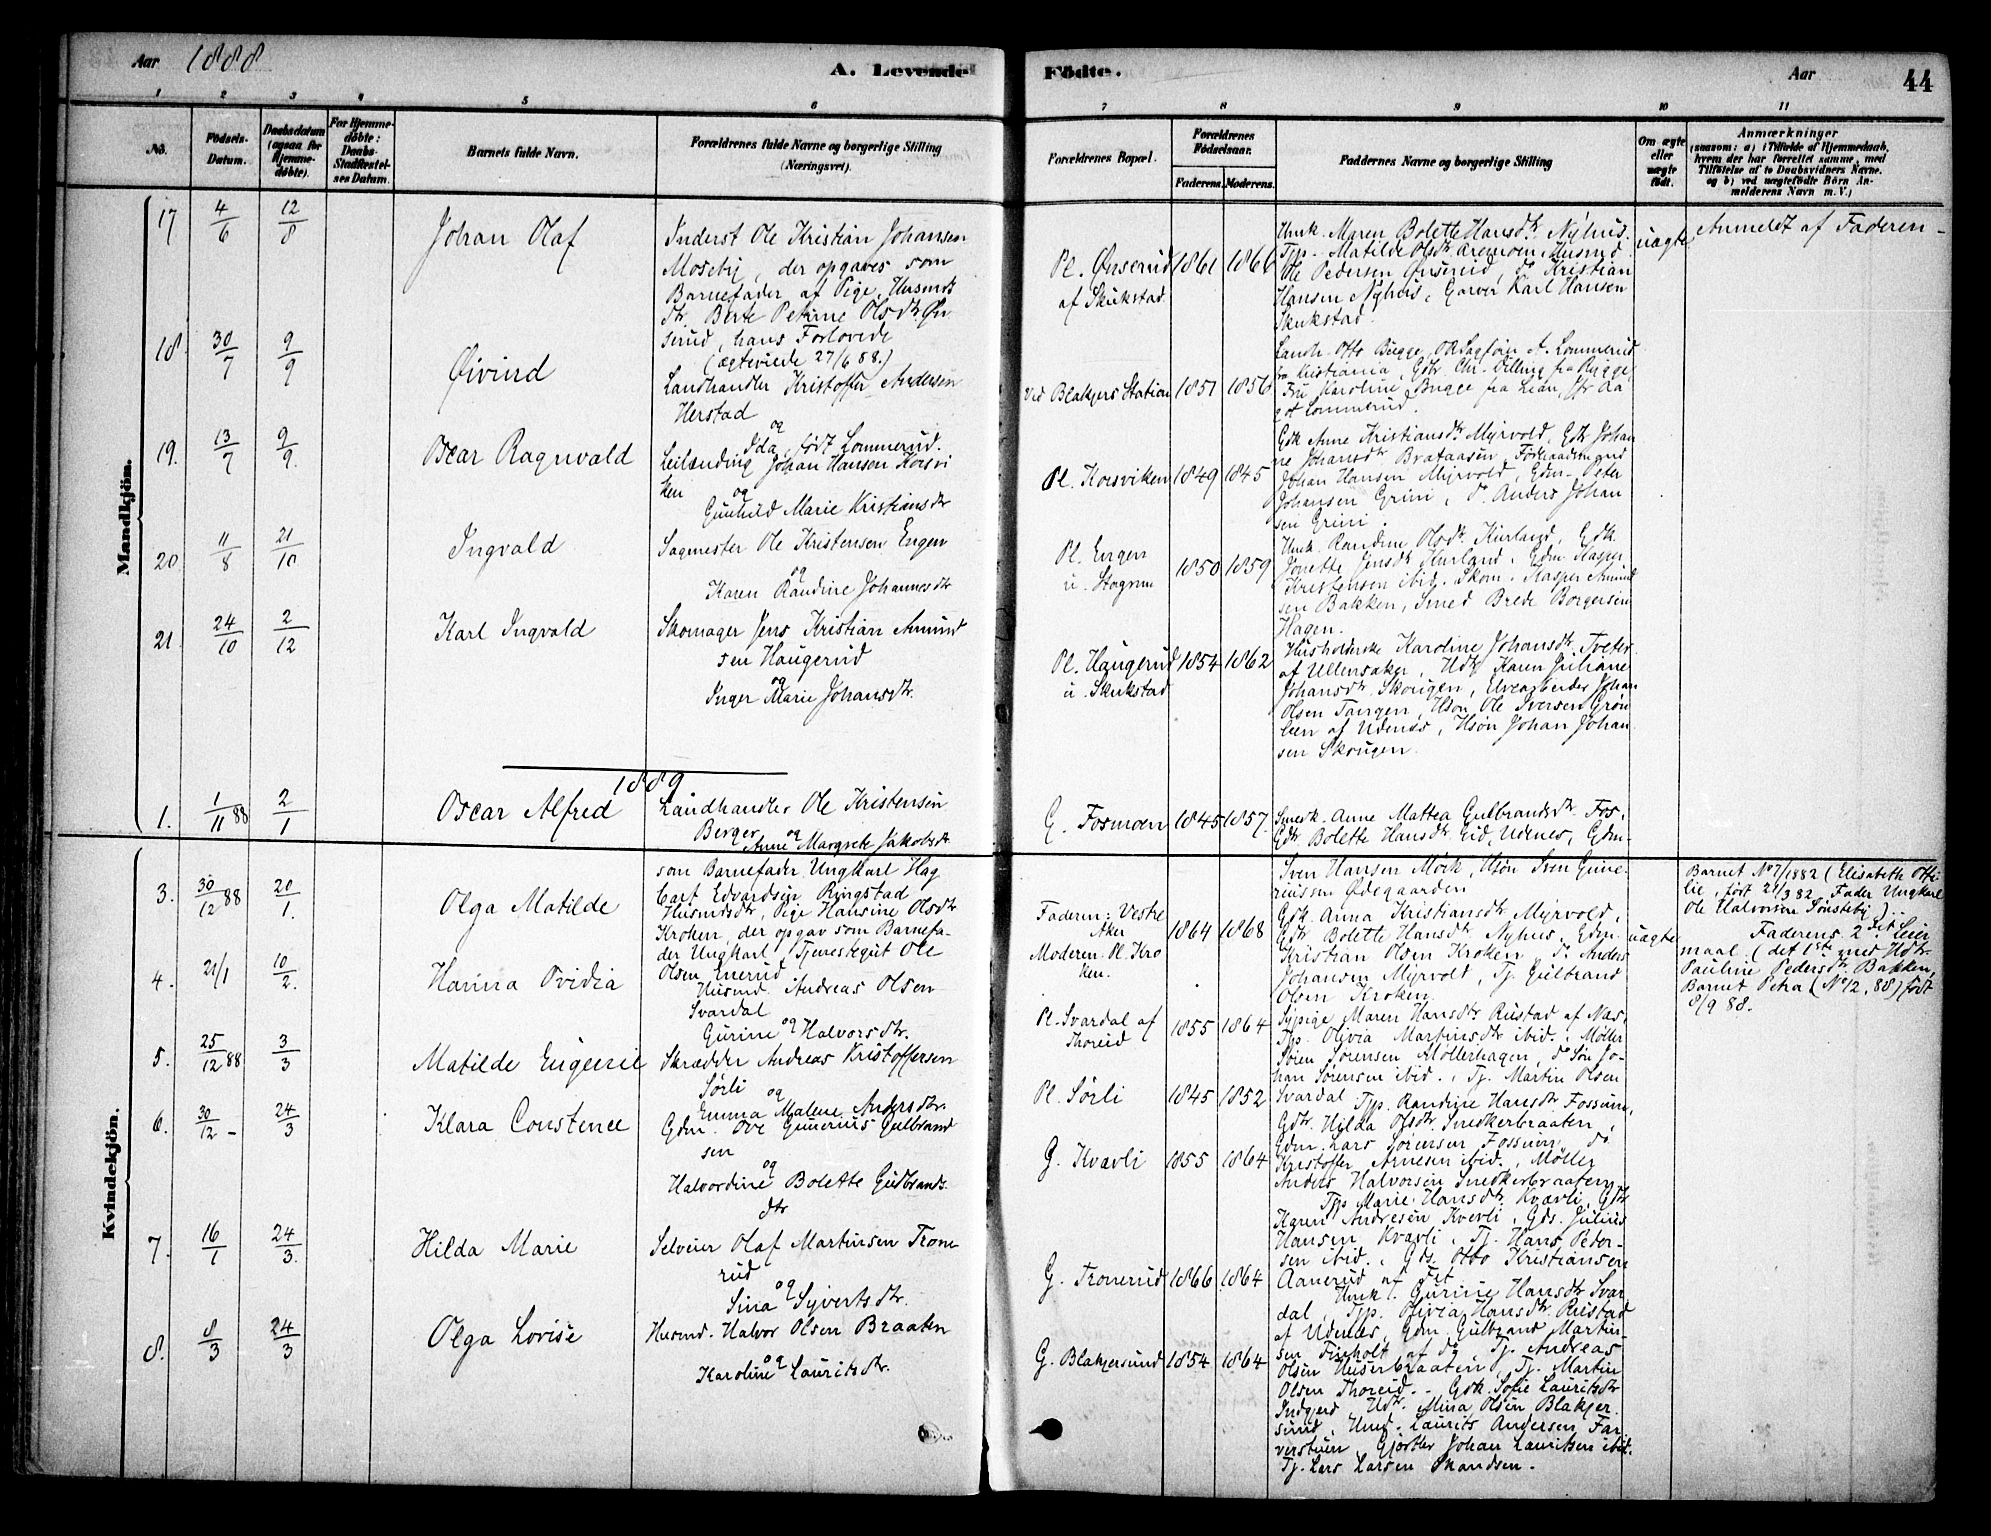 Aar 1888
A. Levende Födte.
Aar 44
1 2 3 4 5 6 7 8 9 10 11
No.
Födsels-Datum.
Daabsdatum (ogsaa for Hjemmedöbte).
For Hjemmedöbte: Daabs-Stadfæstelses Datum.
Barnets fulde Navn.
Forældrenes fulde Navne og borgerlige Stilling
(Næringsvei).
Forældrenes Bopæl.
Forældrenes Födselsaar.
Faderens. Moderens.
Faddernes Navne og borgerlige Stilling
Om ægte eller uægte födt.
Anmærkninger
(saasom: a) i Tilfælde af Hjemmedaab,
hvem der har forrettet samme, med
Tilföielse af to Daabsvidners Navne.
og b) ved uægtefödte Börn An-
melderens Navn m. V.)
Mandkjön.
17 4/6 12/8 Johan Olaf
Inderst Ole Kristian Johansen
Moseby, der opgaves som
Barnefader af Pige, Husmds
dtr. Berte Petrine Olsdtr Øn-
serud, hans Forlovede
(ægteviede 27/6 88.)
Pl. Ønserud
af Skukstad
1861 1866
Umk. Maren Bolette Hansdtr Nyhus.
Tjp. Matilde Olsdtr Aremoen, Husmd
Ole Pedersen Ønserud, do Kristian
Hansen Nyhus, Garver Karl Hansen
Skukstad
uægte
Anmeldt af Faderen -
18. 30/7 9/9 Øivind
Landhandler Kristoffer Andersen
Herstad
og
Ida, født Lommerud.
ved Blakjers Station 1851 1856
Landh. Otto Bugge, OR Sagfører A. Lommerud
fra Kristiania, Gdbr. Chr. Dilling fra Rygge,
Fru Karoline Bugge fra Lian, Frk Aa-
got Lommerud.
19. 13/7 9/9. Oscar Ragnvald
Leilænding Johan Hansen Korsvi
ken og
Gunhild Marie Kristiansdtr
Pl. Korsviken 1849 1845
Gdk Anne Kristiansdtr Myrvold, Gdtr Johan
ne Johansdtr Brataasen, Forhaadsmand
Johan Hansen Myrvold, Gdm. Peter
Johansen Grini, do Anders Johan
sen Grini.
20 11/8 21/10 Ingvald
Sagmester Ole Kristensen Engen
og
Karen Randine Johannesdtr
Pl. Engen
u. Stogrim
1850 1859
Umk. Randine Olsdtr Kurland, Gdk
Jonette Jensdtr Kurland, Gdm Kasper
Kristensen ibid. Skom. Kasper Amund
sen Bakken, Smed Brede Borgersen
Hagen.
21. 24/10 2/12 Karl Ingvald
Skomager Jens Kristian Amund
sen Haugerud
og
Inger Marie Johansdtr.
Pl. Haugerud
u. Skukstad
1854 1862
Husholderske Karoline Johansdtr. Tveter
af Ullensaker, Udtr Karen Juliane
Johansdtr Skougen, Elvearbeider Johan
Olsen Tangen, Hsøn Ole Iversen Grøn
lien af Udenes, Hsøn Johan Johan
sen Skougen.
1889
1. 1/11 88 2/1 Oscar Alfred
Landhandler Ole Kristensen
Berger og
Anne Margrete Jakobsdtr
G. Fosmoen 1845 1857.
Smedk. Anne Mattea Gulbrandsdtr Fos,
Gdtr. Bolette Hansdtr Eid, Udenes, Gdm-
Sven Hansen Mørk, Hsøn Sven Gune-
riussen Ødegaarden
Kvindekjön.
3. 30/12 88 20/1. Olga Matilde
som Barnefader Ungkarl Hag
bart Edvardsen Ringstad
Husmdsdtr, Pige Hansine Olsdtr
Kroken, der opgav som Barnefa-
der Ungkarl, Tjenestegut Ole
Olsen Enerud
Faderen: Vestre
Aker
Moderen: Pl. Kro
ken.
1864 1868
Gdk. Anna Kristiansdtr Myrvold,
Gdtr Bolette Hansdtr Nyhus, Gdm.
Kristian Olsen Kroken, do Anders
Johansen Myrvolt, Tj. Gulbrand
Olsen Kroken.
uægte
Barnet No 7/1882 (Elisabeth Otti
lie, født 21/3 82. Fader Ungkarl
Ole Halvorsen Sønsteby)..
Faderens 2det Leier
maal (det 1ste med Udtr.
Pauline Pedersdtr. Bakken,
Barnet Petra (No 12, 88) født
8/9 88.
4. 21/1 10/2. Hanna Ovidia
Husmd. Andreas Olsen
Svardal
og
Gurine Halvorsdtr.
Pl. Svardal af
Thoreid
1855 1864
Sypige Maren Hansdtr Rustad af Næs,
Tjp. Olivia Martinsdtr ibid., Møller
Søren Sørensen Møllerhagen, do Søn Jo-
han Sørensen ibid., Tj. Martin Olsen
Svardal
5. 25/12 88 3/3 Matilde Eugenie
Skrædder Andreas Kristoffersen
Sørli og
Emma Malene Andersdtr.
Pl. Sørli 1845 1852
Tjp. Randine Hansdtr Fossum,
Gdtr. Hilda Olsdtr. Snedkerbraaten,
Gdm. Lars Sørensen Fossum, do
Kristoffer Arnesen ibid., Møller
Anders Halvorsen Snedkerbraaten
6. 30/12 - 24/3 Klara Constence
Gdm. Ove Gunerius Gulbrand
sen
og
Halvordine Bolette Gudbrands.
dtr
G. Kvævli 1855 1864
Tjp Marie Hansdtr. Kvævli, Gdk
Karen Andresen Kvevli, Gds. Julius
Hansen Kvævli, Tj. Hans Peder-
sen ibid., Gds. Otto Kristiansen
Aanerud af Fet
7. 16/1 24/3. Hilda Marie
Selveier Olaf Martinsen Trone
rud
og
Sina Syvertsdtr.
G. Tronerud 1866 1864
Umk. Gurine Hansdtr Svar
dal, Tjp. Olivia Hansdtr. Rustad
af Udenes, Gdm Gulbrand Martin-
sen Finholt af do, Tj. Andreas
Olsen Huserbraaten, Tj. Martin
Olsen Thoreid.
8. 8/3 24/3 Olga Lovise
Husmd. Halvor Olsen Braaten
og
Karoline Lauritsdtr.
G. Blakjersund 1854 1864
Gdk. Sofie Lauritsdtr
Indgjerd, Udtr. Mina Olsen Blakjer
sund, Umd. Laurits Andersen Far
verstuen, Gjørtler Johan Lauritsen ibid.
Tj. Lars Larsen Skandsen.